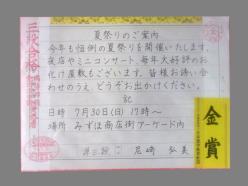 夏祭りのご案内
今年も恒例の夏祭りを開催いたします。
夜店やミニコンサート、毎年大好評のお
化け屋敷もございます。皆様お誘い合
わせのうえ、どうぞお出かけください。
記
日時 7月30日(日)17時〜
場所 みずほ商店街アーケード内
第三段 尼崎 弘美
三段合格
金賞